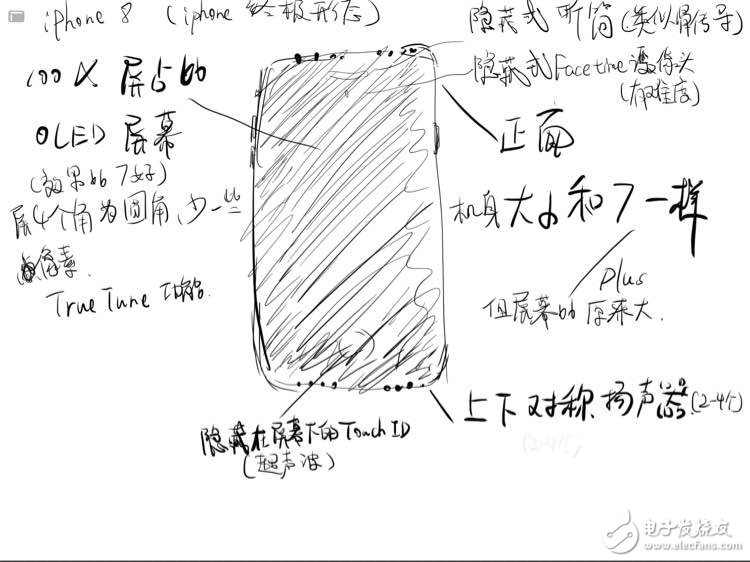 iphone 8 （iphone 终极形态）
隐藏式 听筒（类似骨传导）
隐藏式 Facetime 摄像头
（有难度）
100% 屏占比
OLED 屏幕
（效果比7好）
屏4个角为圆角，少一些
像素.
True Tune 功能.
正面
机身大小和7一样
plus
但屏幕比原来大.
上下对称扬声器（2-4个）
隐藏在屏幕下的Touch ID
（超声波）
电子发烧友
www.elecfans.com